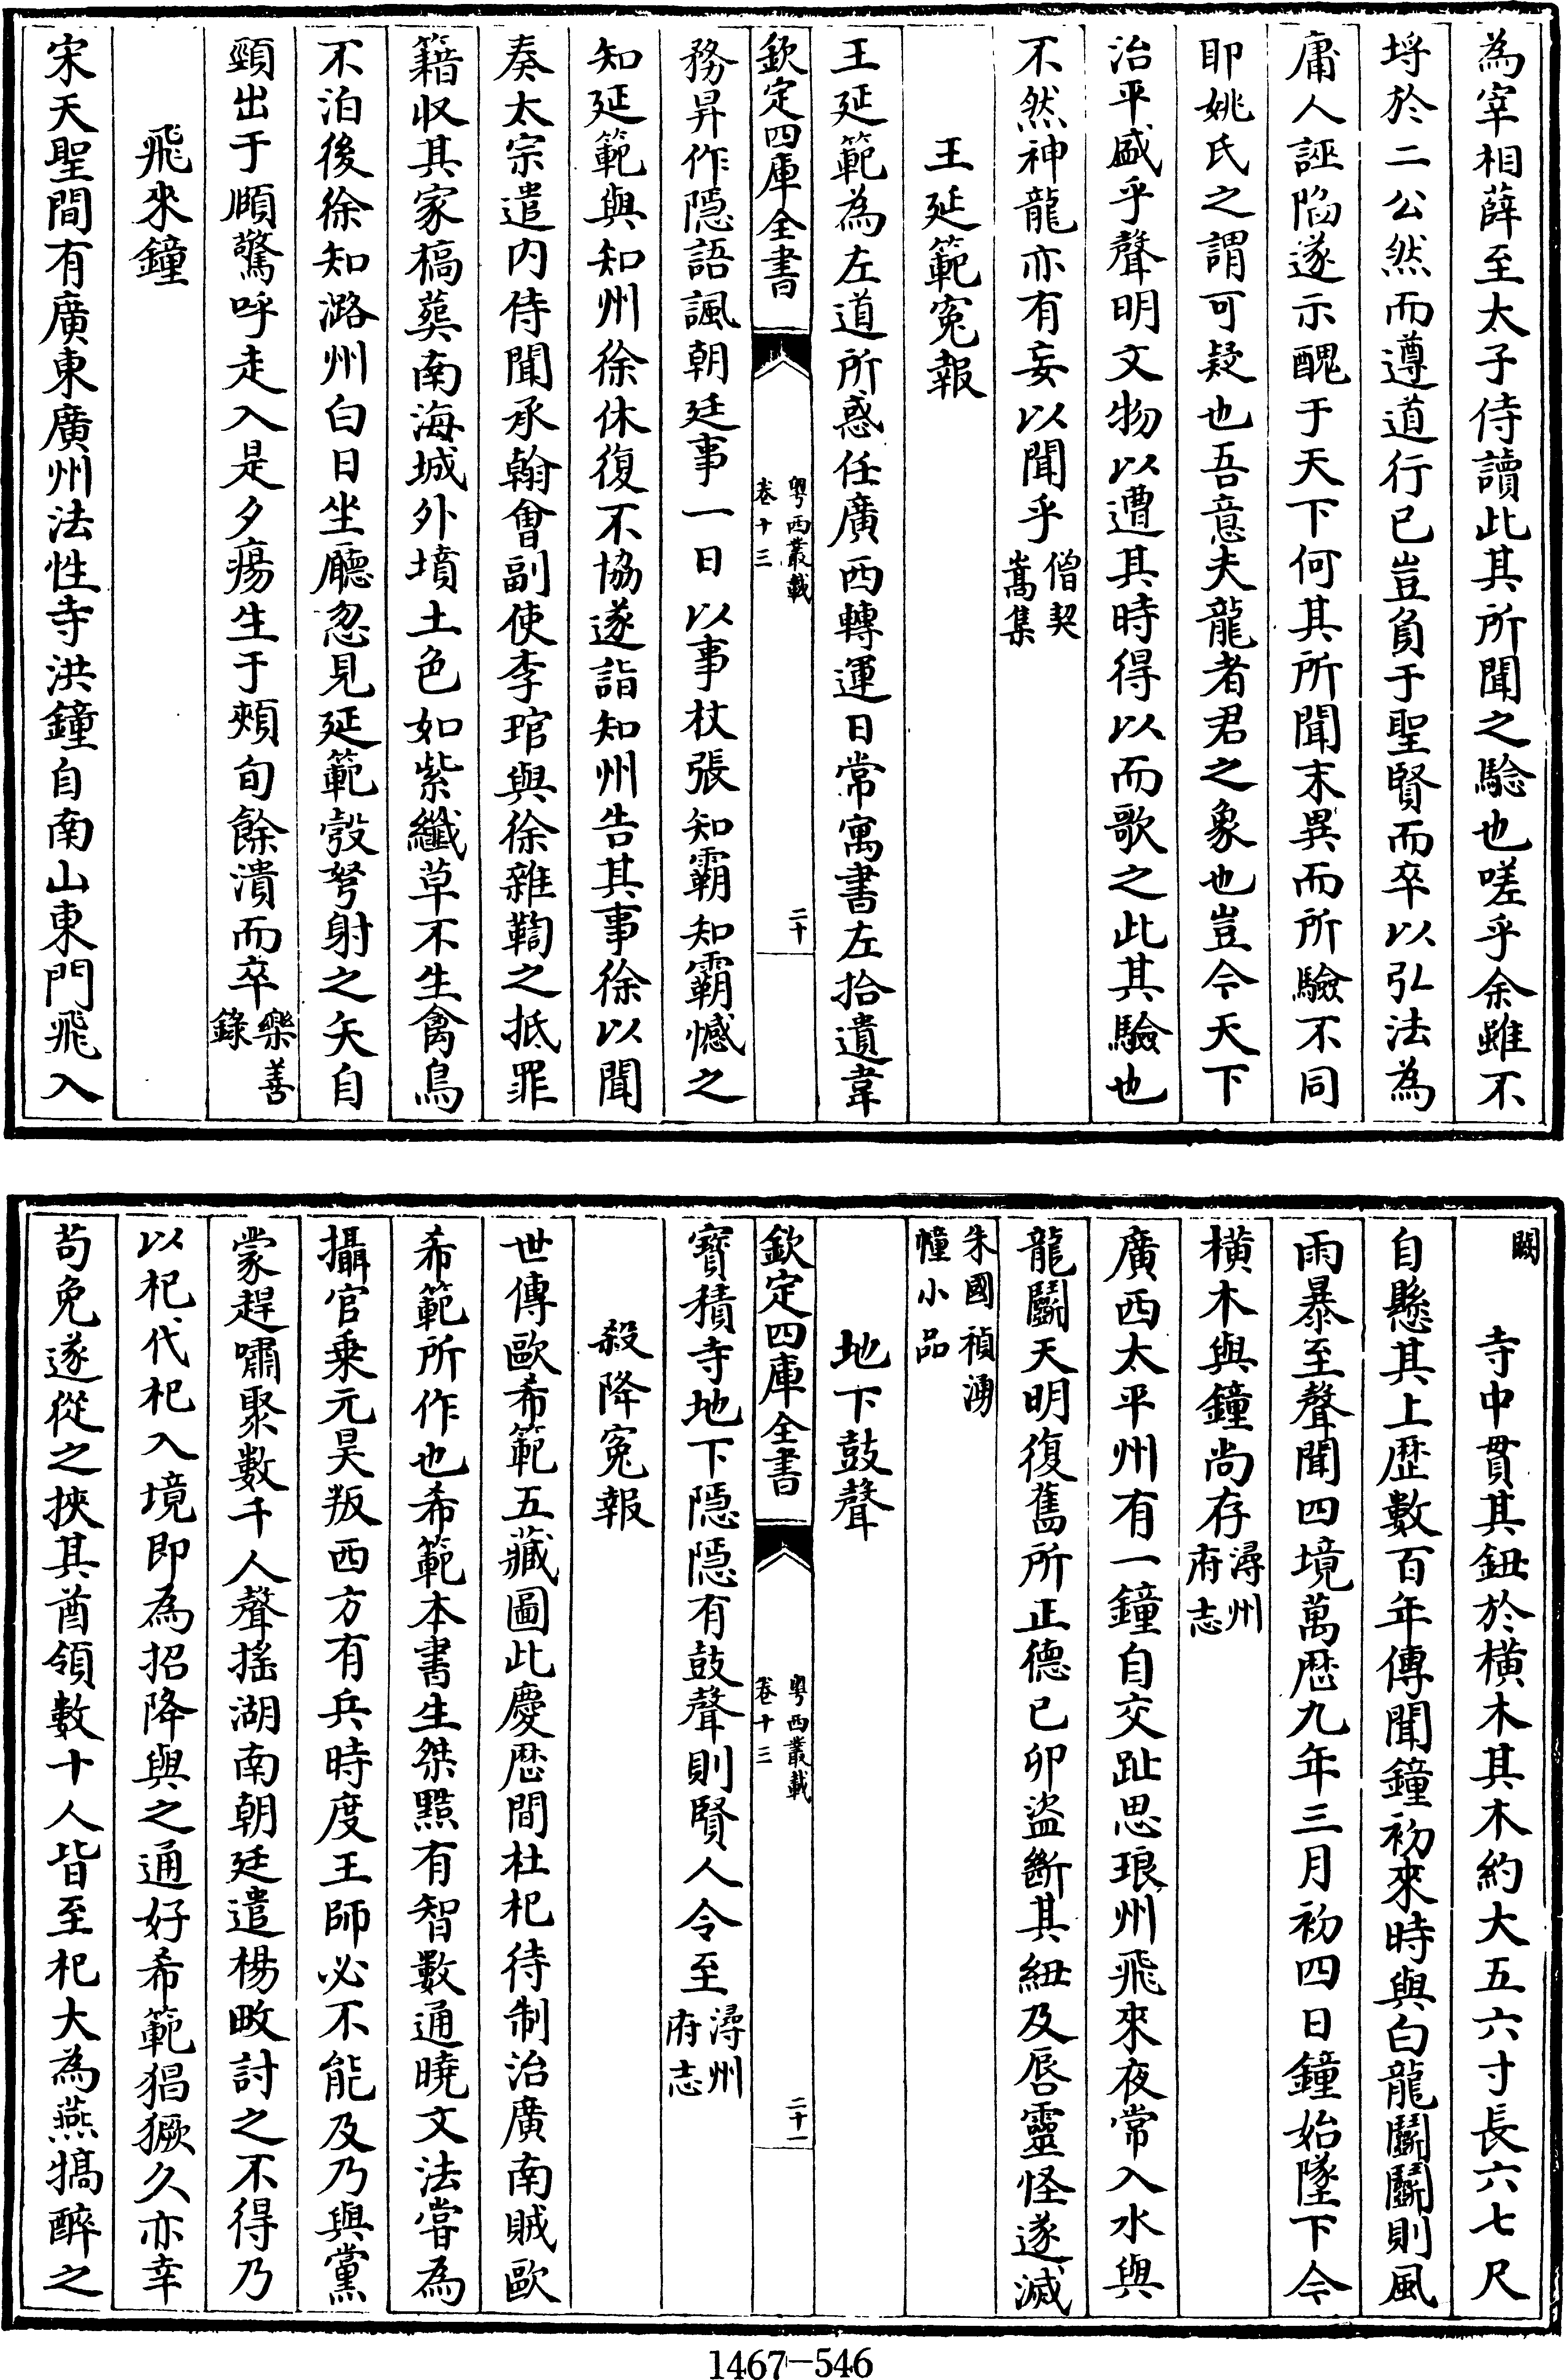 為宰相薛至太子侍讀此其所聞之騐也嗟乎余雖不
埓於二公然而遵道行已豈負于聖賢而卒以弘法為
庸人誣陷遂示醜于天下何其所聞末異而所驗不同
耶姚氏之謂可疑也吾意夫龍者君之象也豈今天下
治平盛乎聲明文物以遭其時得以而歌之此其驗也
不然神龍亦有妄以聞乎僧契嵩集
王延範寃報
王延範為左道所惑任廣西轉運日常寓書左拾遺韋
欽定四庫全書
粤西叢載
卷十三
二十
務昇作隠語諷朝廷事一日以事杖張知霸知霸憾之
知延範與知州徐休復不協遂詣知州告其事徐以聞
奏太宗遣内侍閻承翰㑹副使李琯與徐雜鞫之抵罪
籍収其家槁葬南海城外墳土色如紫纖草不生禽鳥
不泊後徐知潞州白日坐廳忽見延範彀弩射之矢自
頸出于順驚呼走入是夕瘍生于頰旬餘潰而卒樂善錄
飛來鐘
宋天聖間有廣東廣州法性寺洪鐘自南山東門飛入
闕寺中貫其鈕於横木其木約大五六寸長六七尺
自懸其上歴數百年傳聞鐘初來時與白龍鬭鬭則風
雨暴至聲聞四境萬厯九年三月初四日鐘始墜下今
横木與鐘尚存潯州府志
廣西太平州有一鐘自交趾思琅州飛來夜常入水與
龍鬭天明復舊所正德已卯盜斷其紐及唇靈怪遂滅
朱國禎湧幢小品
地下鼓聲
欽定四庫全書
粤西叢載
卷十三
二十一
寳積寺地下隠隠有鼓聲則賢人令至潯州府志
殺降寃報
世傳歐希範五藏圖此慶厯間杜杞待制治廣南賊歐
希範所作也希範本書生桀黠有智數通曉文法嘗為
攝官乗元昊叛西方有兵時度王師必不能及乃與黨
蒙趕嘯聚數千人聲摇湖南朝廷遣楊畋討之不得乃
以杞代杞入境即為招降與之通好希範猖獗久亦幸
茍免遂從之挾其酋領數十人皆至杞大為燕犒醉之
1467—546